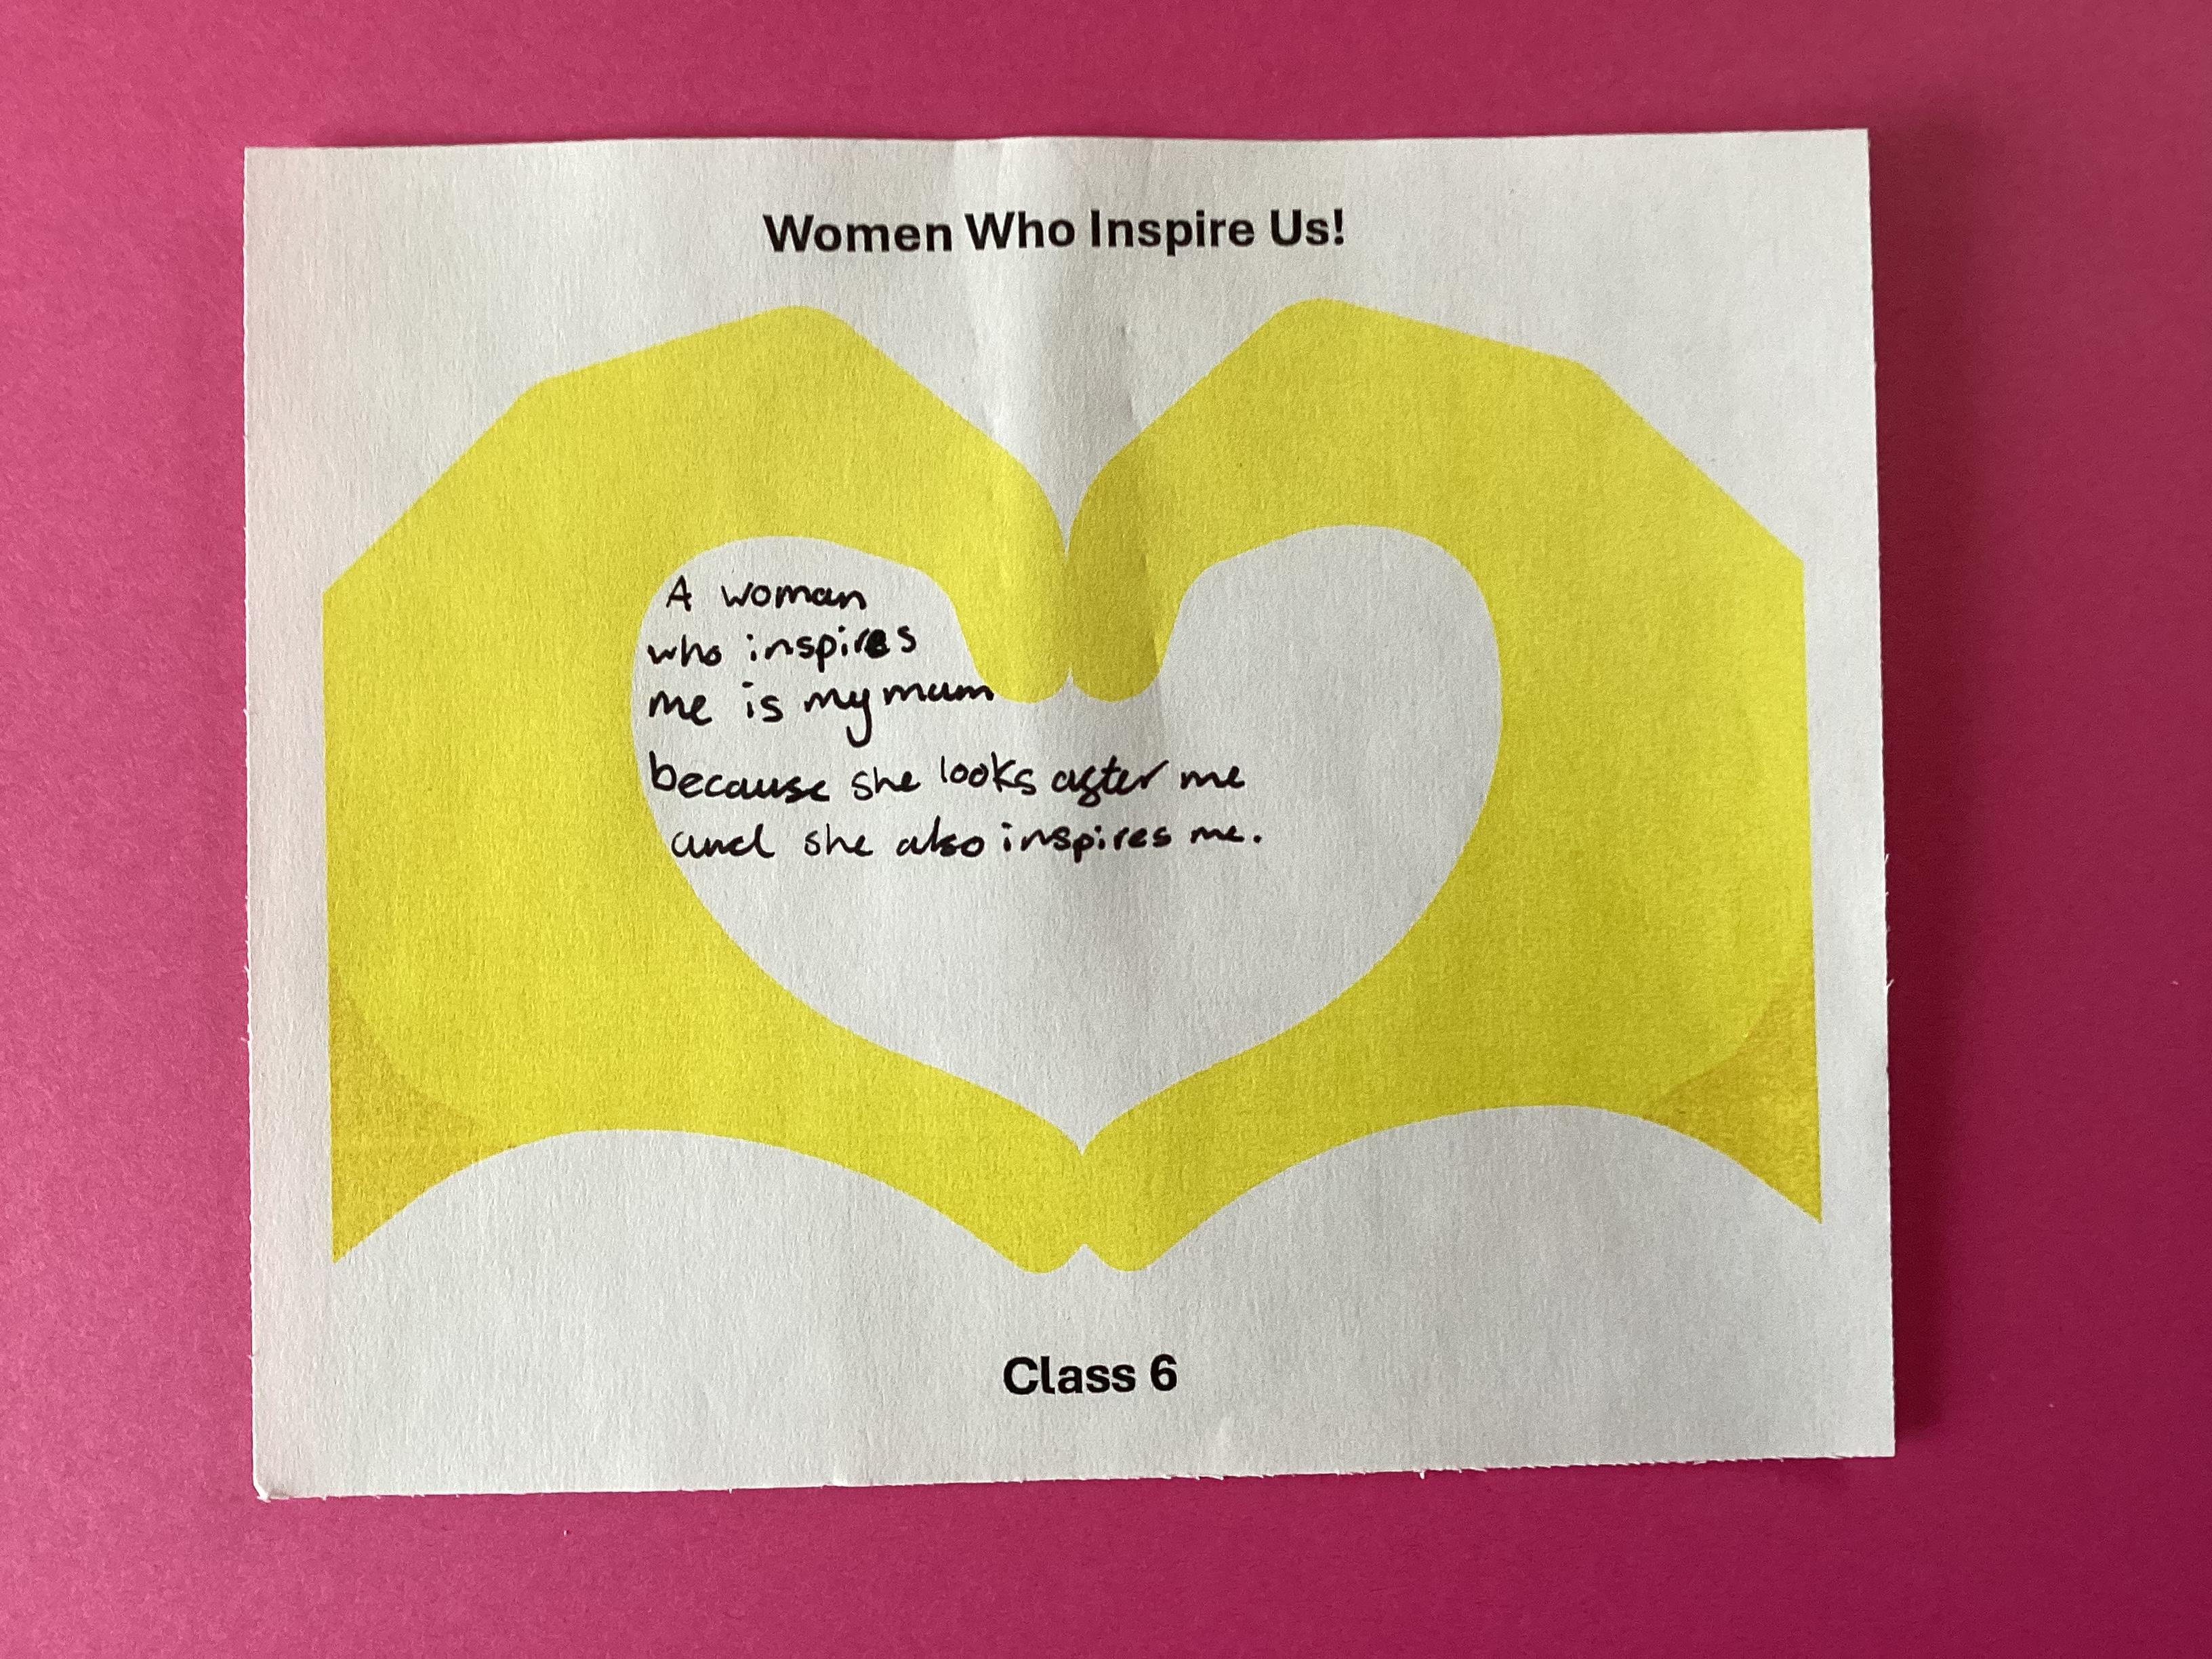 Women Who Inspire Us!
A woman
who inspires
me is my mum
because she looks after me
and she also inspires me.
Class 6